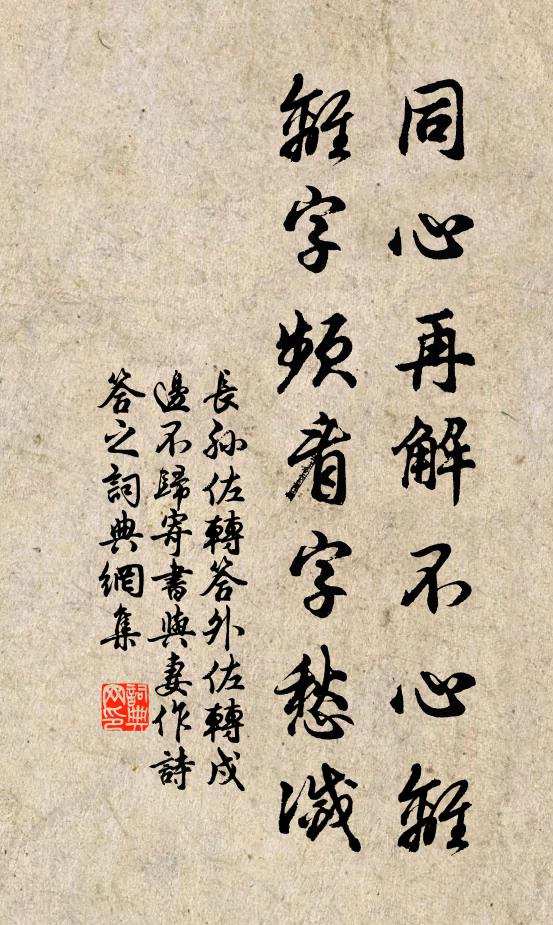 同心再解不心離
離字頻看字愁滅
長孫佐轉答外佐轉戍
邊不歸寄書與妻作詩
答之詞典網集
詞典
网印